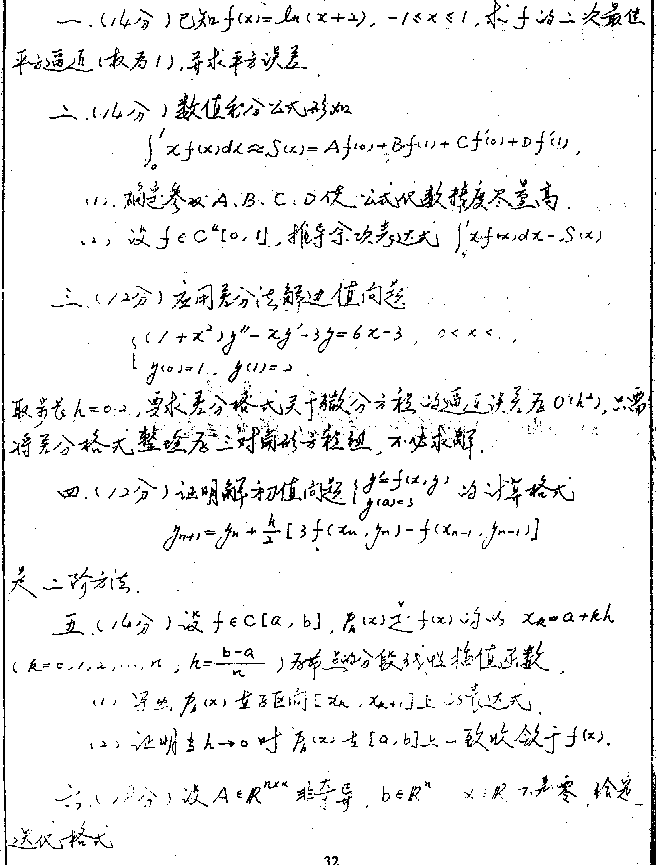 一.(14分)已知f(x)=ln(x+2), -1≤x≤1, 求f的二次最佳
平方逼近(权为1),并求平方误差.
二.(14分)数值积分公式形如
∫₀¹xf(x)dx≈S(x)=Af(0)+Bf(1)+Cf'(0)+Df'(1),
(1).确定参数A、B、C、D使公式代数精度尽量高.
(2) 设f∈C⁴[0,1],推导余项表达式∫₀¹xf(x)dx-S(x)
三.(12分)应用差分法解边值问题
(1+x²)y''-xy'-3y=6x-3, 0<x<
y(0)=1, y(1)=2
取步长h=0.2,要求差分格式关于微分方程的逼近误差为O(h²),只需
将差分格式整理为三对角形方程组,不必求解.
四.(12分)证明解初值问题{y'=f(x,y) y(a)= 的计算格式
yₙ₊₁=yₙ+h/2[3f(xₙ,yₙ)-f(xₙ₋₁,yₙ₋₁)]
是二阶方法.
五.(14分)设f∈C[a,b], (x)是f(x)的以xₖ=a+kh
(k=0,1,2,…,n, h=(b-a)/n)为节点的分段线性插值函数.
(1) 导出 (x)在子区间[xₖ,xₖ₊₁]上的表达式.
(2) 证明当h→0时 (x)在[a,b]上一致收敛于f(x).
六.( 分)设A∈Rⁿˣⁿ非奇异, b∈Rⁿ 不为零,给定
迭代格式
32